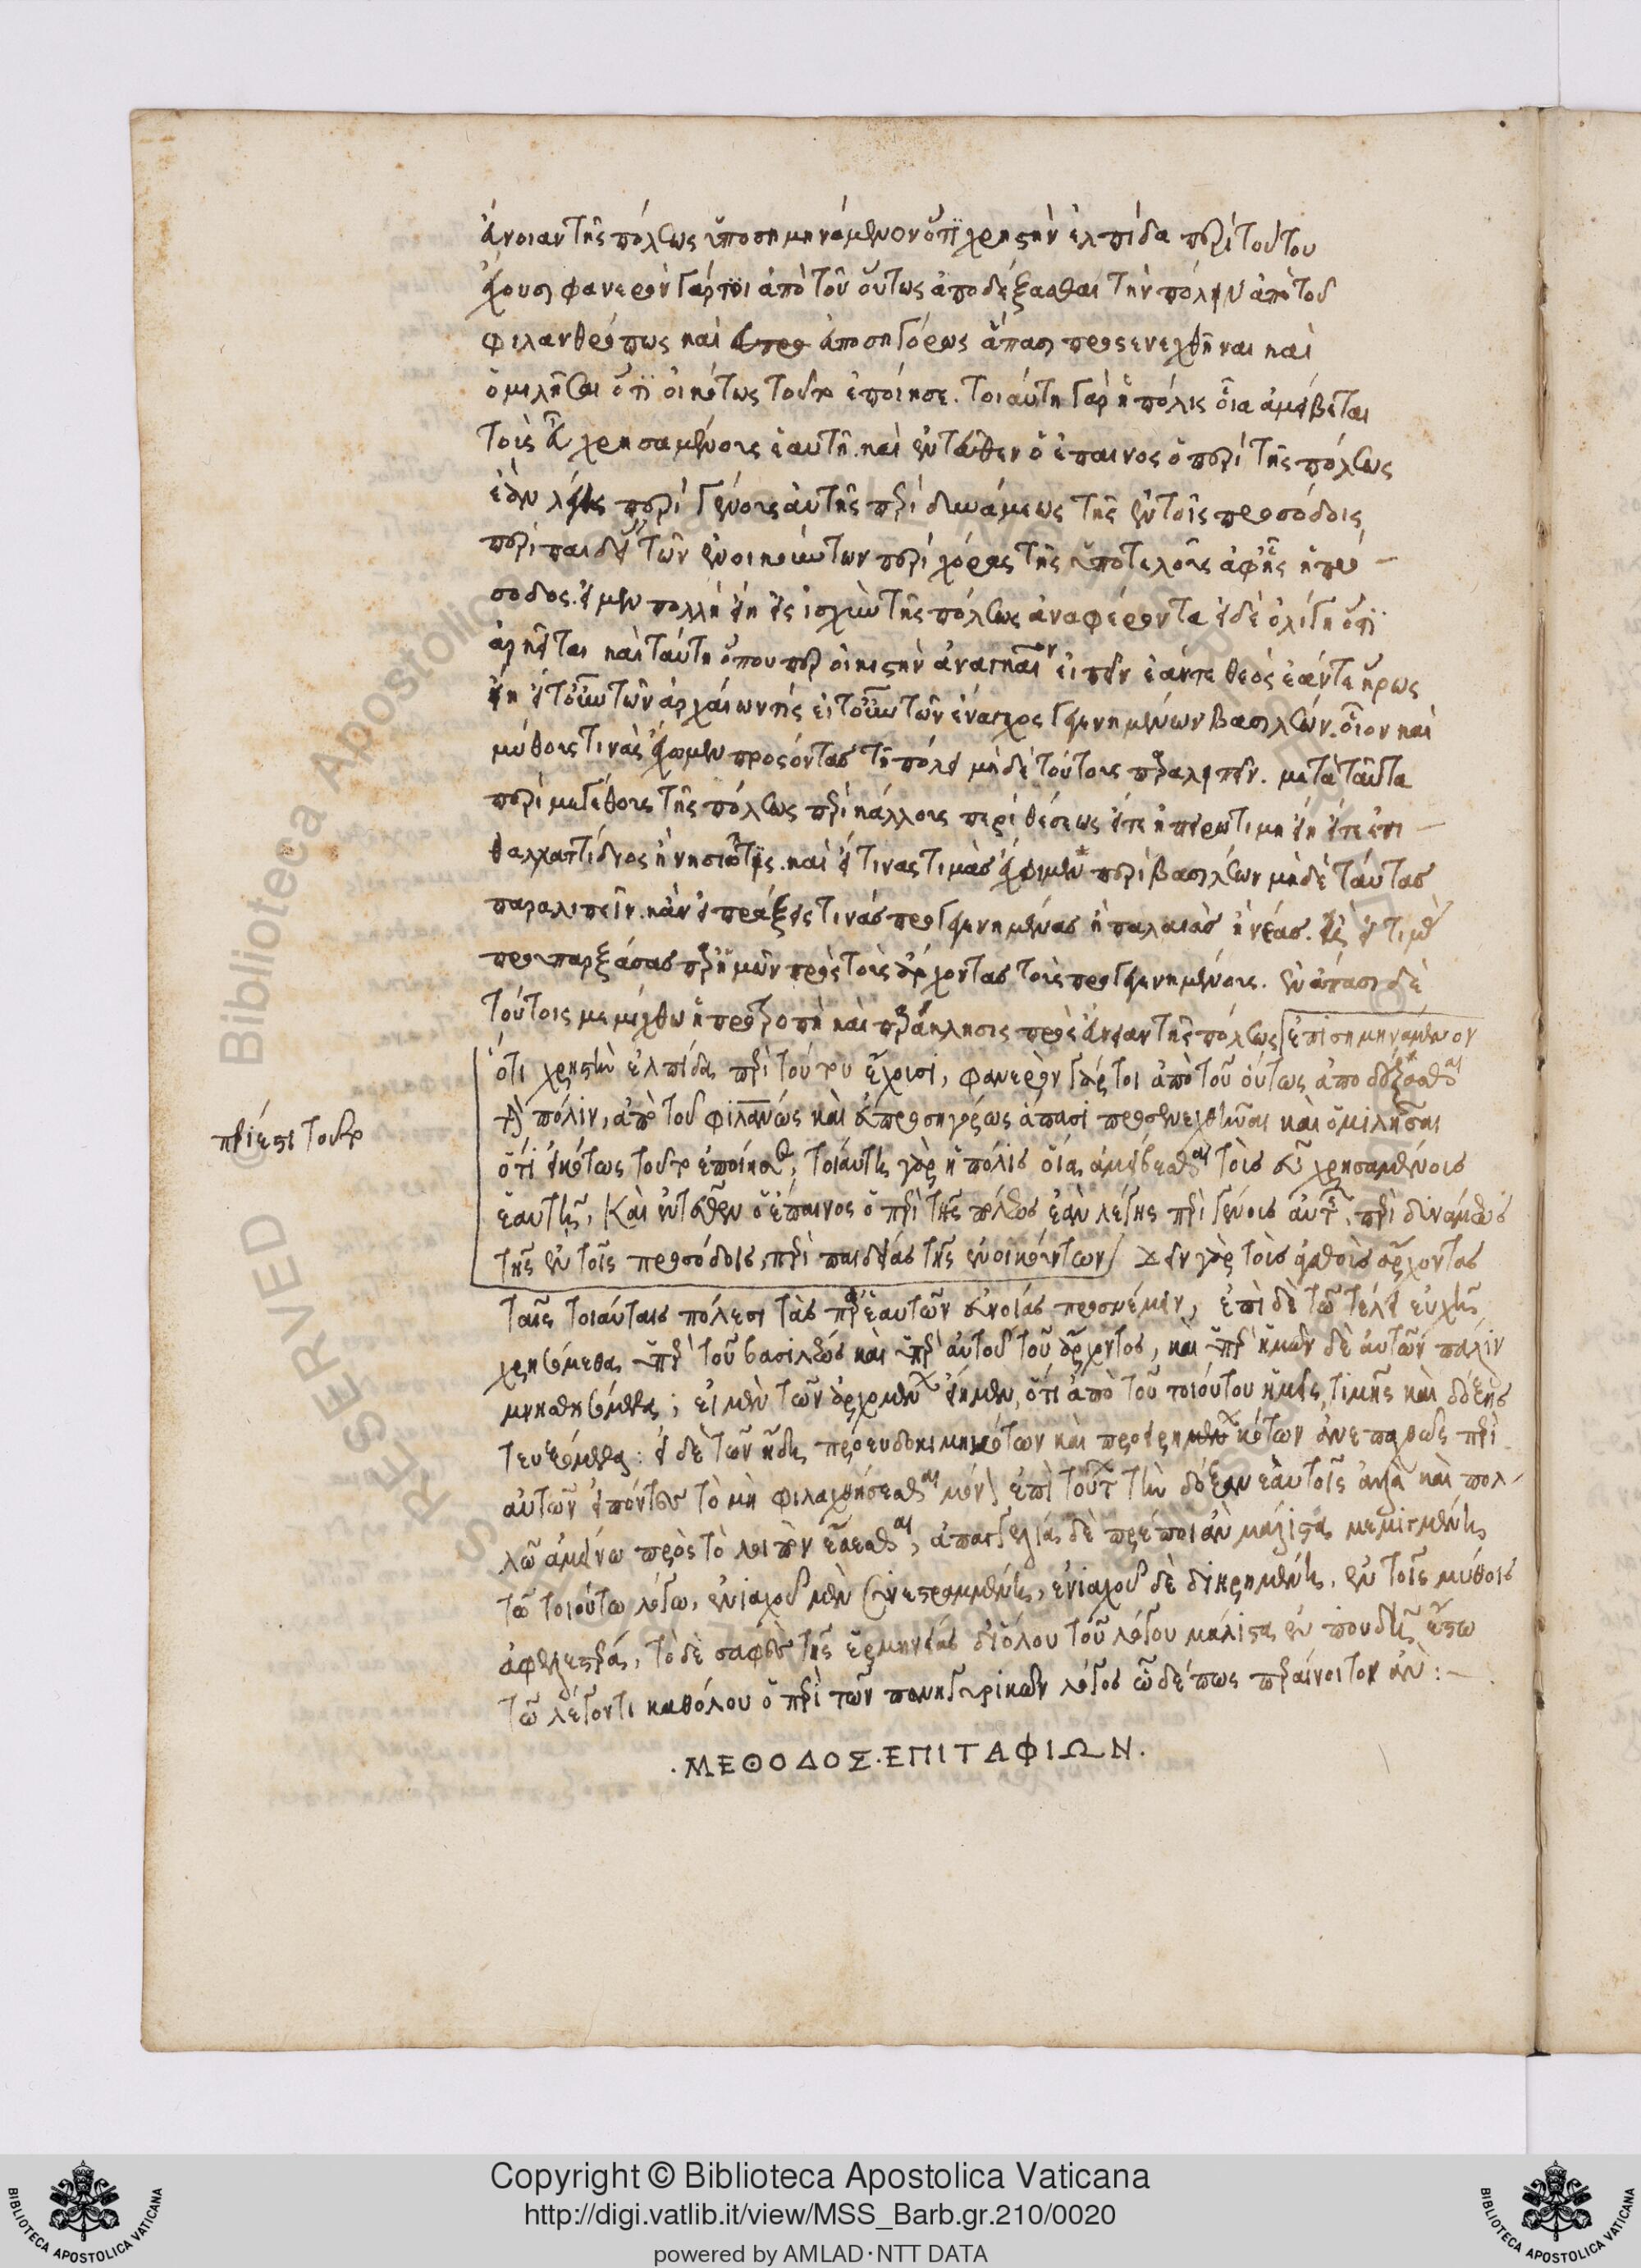 ἄνοιαν τῆς πόλεως ὑποσημηνάμενον ὅτι χρηστὴν ἐλπίδα περὶ τούτου
ἔχουσι φανερὸν γάρ τοι ἀπὸ τοῦ οὕτως ἀποδέξασθαι τὴν πόλιν ἀπὸ τοῦ
φιλανθρώπως καὶ ἅπασι προσενεχθῆναι καὶ
ὁμιλῆσαι ὅτι οἰκότως τοῦτο ἐποίησε. τοιαύτη γὰρ ἡ πόλις οἷα ἀμείβεται
τοὺς εὖ χρησαμένους ἑαυτῇ. καὶ ἐνταῦθεν ὁ ἔπαινος ὁ περὶ τῆς πόλεως
ἐὰν λέγεις περὶ γένους αὐτῆς περὶ δυνάμεως τῆς ἐν τοῖς προσόδοις
περὶ παιδείας τῶν ἐνοικούντων περὶ χώρας τῆς ὑποτελοῦς ἀφ' ἧς ἡ πρό-
σοδος. εἰ μὲν πολλὴ εἴη εἰς ἰσχὺν τῆς πόλεως ἀναφέροντα εἰ δὲ ὀλίγη ὅτι
ἀρκεῖται καὶ ταύτη ὅπου περ οἰκιστὴν ἀναγκαῖον εἰπεῖν ἐάν τε θεὸς ἐάν τε ἥρως
εἴη εἴτουν τῶν ἀρχαίων τις εἴτουν τῶν ἔναγχος γεγενημένων βασιλέων. οἷον καὶ
μύθους τινὰς ἔχωμεν προσόντας τῇ πόλει μηδὲ τούτους παραλιπεῖν. μετὰ ταῦτα
περὶ μεγέθους τῆς πόλεως περὶ κάλλους περὶ θέσεως εἴτε ἠπειρώτιμη εἴη εἴτε ἐπι-
θαλχαττίδιος ἡ νησιῶτις. καὶ εἴ τινας τιμὰς ἔχοιμεν περὶ βασιλέων μηδὲ ταύτας
παραλιπεῖν. κἂν εἰ πράξεις τινὰς προγεγενημένας ἢ παλαιὰς ἢ νέας.
προυπαρξάσας παρ' ἡμῶν πρὸς τοὺς ἄρχοντας τοὺς προγεγενημένους. ἐν ἅπασι δὲ
τούτοις μεμίχθω ἡ προτροπὴ καὶ παράκλησις πρὸς εὔνοιαν τῆς πόλεως ἐπισημηνάμενον
ὅτι χρηστὴν ἐλπίδα περὶ τούτου ἔχουσι, φανερὸν γάρ τοι ἀπὸ τοῦ οὕτως ἀποδέξασθαι
τὴν πόλιν, ἀπὸ τοῦ φιλανως καὶ εὐπροσηγόρως ἅπασι προσενεχθῆναι καὶ ὁμιλῆσαι
περὶ ἔτι τοῦτο
ὅτι εἰκότως τοῦτο ἐποίησε, τοιαύτη γὰρ ἡ πόλις οἵα ἀμείβεσθαι τοὺς εὖ χρησαμένους
ἑαυτῆ, καὶ ἐνταῦθεν ὁ ἔπαινος ὁ περὶ τῆς πόλεως ἐὰν λέγης περὶ γένους αὐτῆς, περὶ δυνάμεως
τῆς ἐν τοῖς προσόδοις, περὶ παιδείας τῆς ἐνοικούντων δεῖν γὰρ τοὺς ἀγαθοὺς ἄρχοντας
ταῖς τοιαύταις πόλεσι τὰς παρ' ἑαυτῶν εὐνοίας προσνέμειν, ἐπὶ δὲ τῶ τέλει εὐχῆς
χρησόμεθα ὑπὲρ τοῦ βασιλέως καὶ ὑπὲρ αὐτοῦ τοῦ ἄρχοντος, καὶ ὑπὲρ ἡμῶν δὲ αὐτῶν πάλιν
μνησθησόμεθα; εἰ μὲν τῶν ἀρχομένων εἴημεν, ὅτι ἀπὸ τοῦ τοιούτου ἡμεῖς τιμῆς καὶ δόξης
τευξόμεθα: εἰ δὲ τῶν ἤδη προευδοκιμηκότων καὶ προειρηκότων ἀνεπαχθῶς περὶ
αὐτῶν εἰπόντες τὸ μὴ φιλαχθήσεσθαι μόνον ἐπὶ τούτων τὴν δόξαν ἑαυτοῖς ἀλλὰ καὶ πολ-
λῶ ἀμείνω πρὸς τὸ λοιπὸν ἔσεσθαι, ἀπαγγελίας δὲ πρέποι ἂν μάλιστα μεμιγμένη
τῶ τοιούτω λόγω, ἐνιαχοῦ μὲν συνεστραμμένη, ἐνιαχοῦ δὲ διηρημένη, ἐν τοῖς μύθοις
ἀφελεστέρα, τὸ δὲ σαφὲς τῆς ἑρμηνείας δι' ὅλου τοῦ λόγου μάλιστα ἐν σπουδῆ ἔστω
τῶ λέγοντι καθόλου ὁ περὶ τῶν πανηγυρικῶν λόγος ὧδέ πως περαίνοιτον ἄν:-
·ΜΕΘΟΔΟΣ·ΕΠΙΤΑΦΙΩΝ·
Copyright © Biblioteca Apostolica Vaticana
http://digi.vatlib.it/view/MSS_Barb.gr.210/0020
powered by AMLAD·NTT DATA